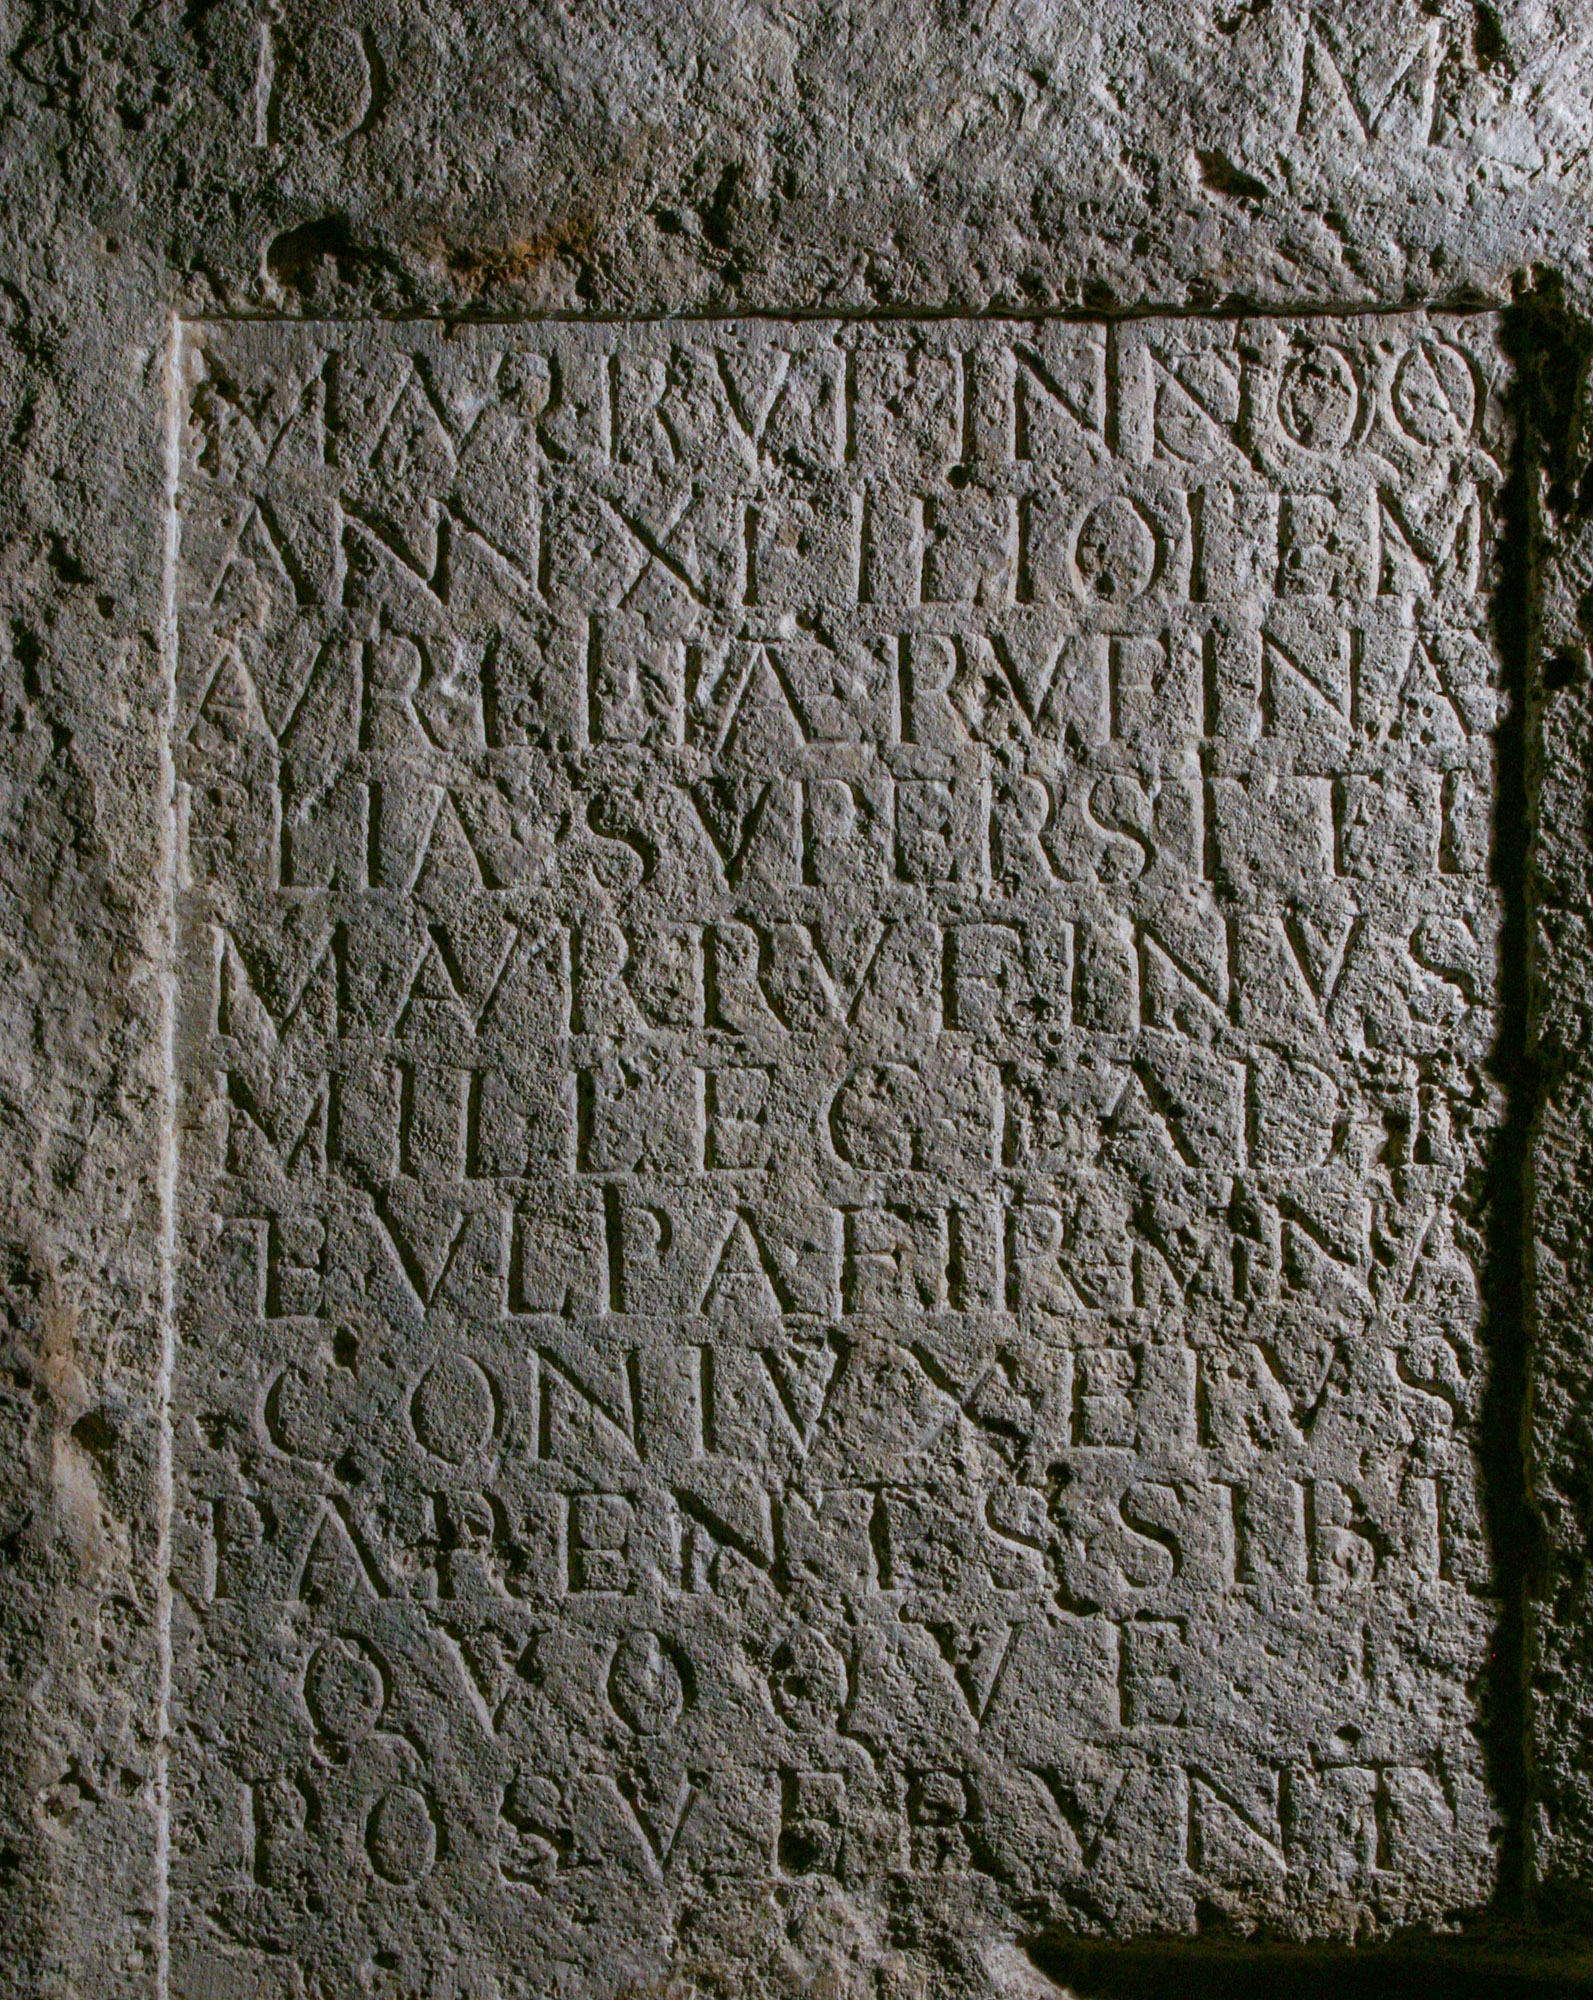 D M
M AVR RVFINNO Q
ANN X FILIO ITEM
AVRELIAE RVFINA
FILIA SVPERSTITE
M AVR RVFINVS
MIL LEG I AD
E VLPA FIRMINA
CONIVX EIVS
PARENTS SIBI
QVOQVE
POSVERVNT